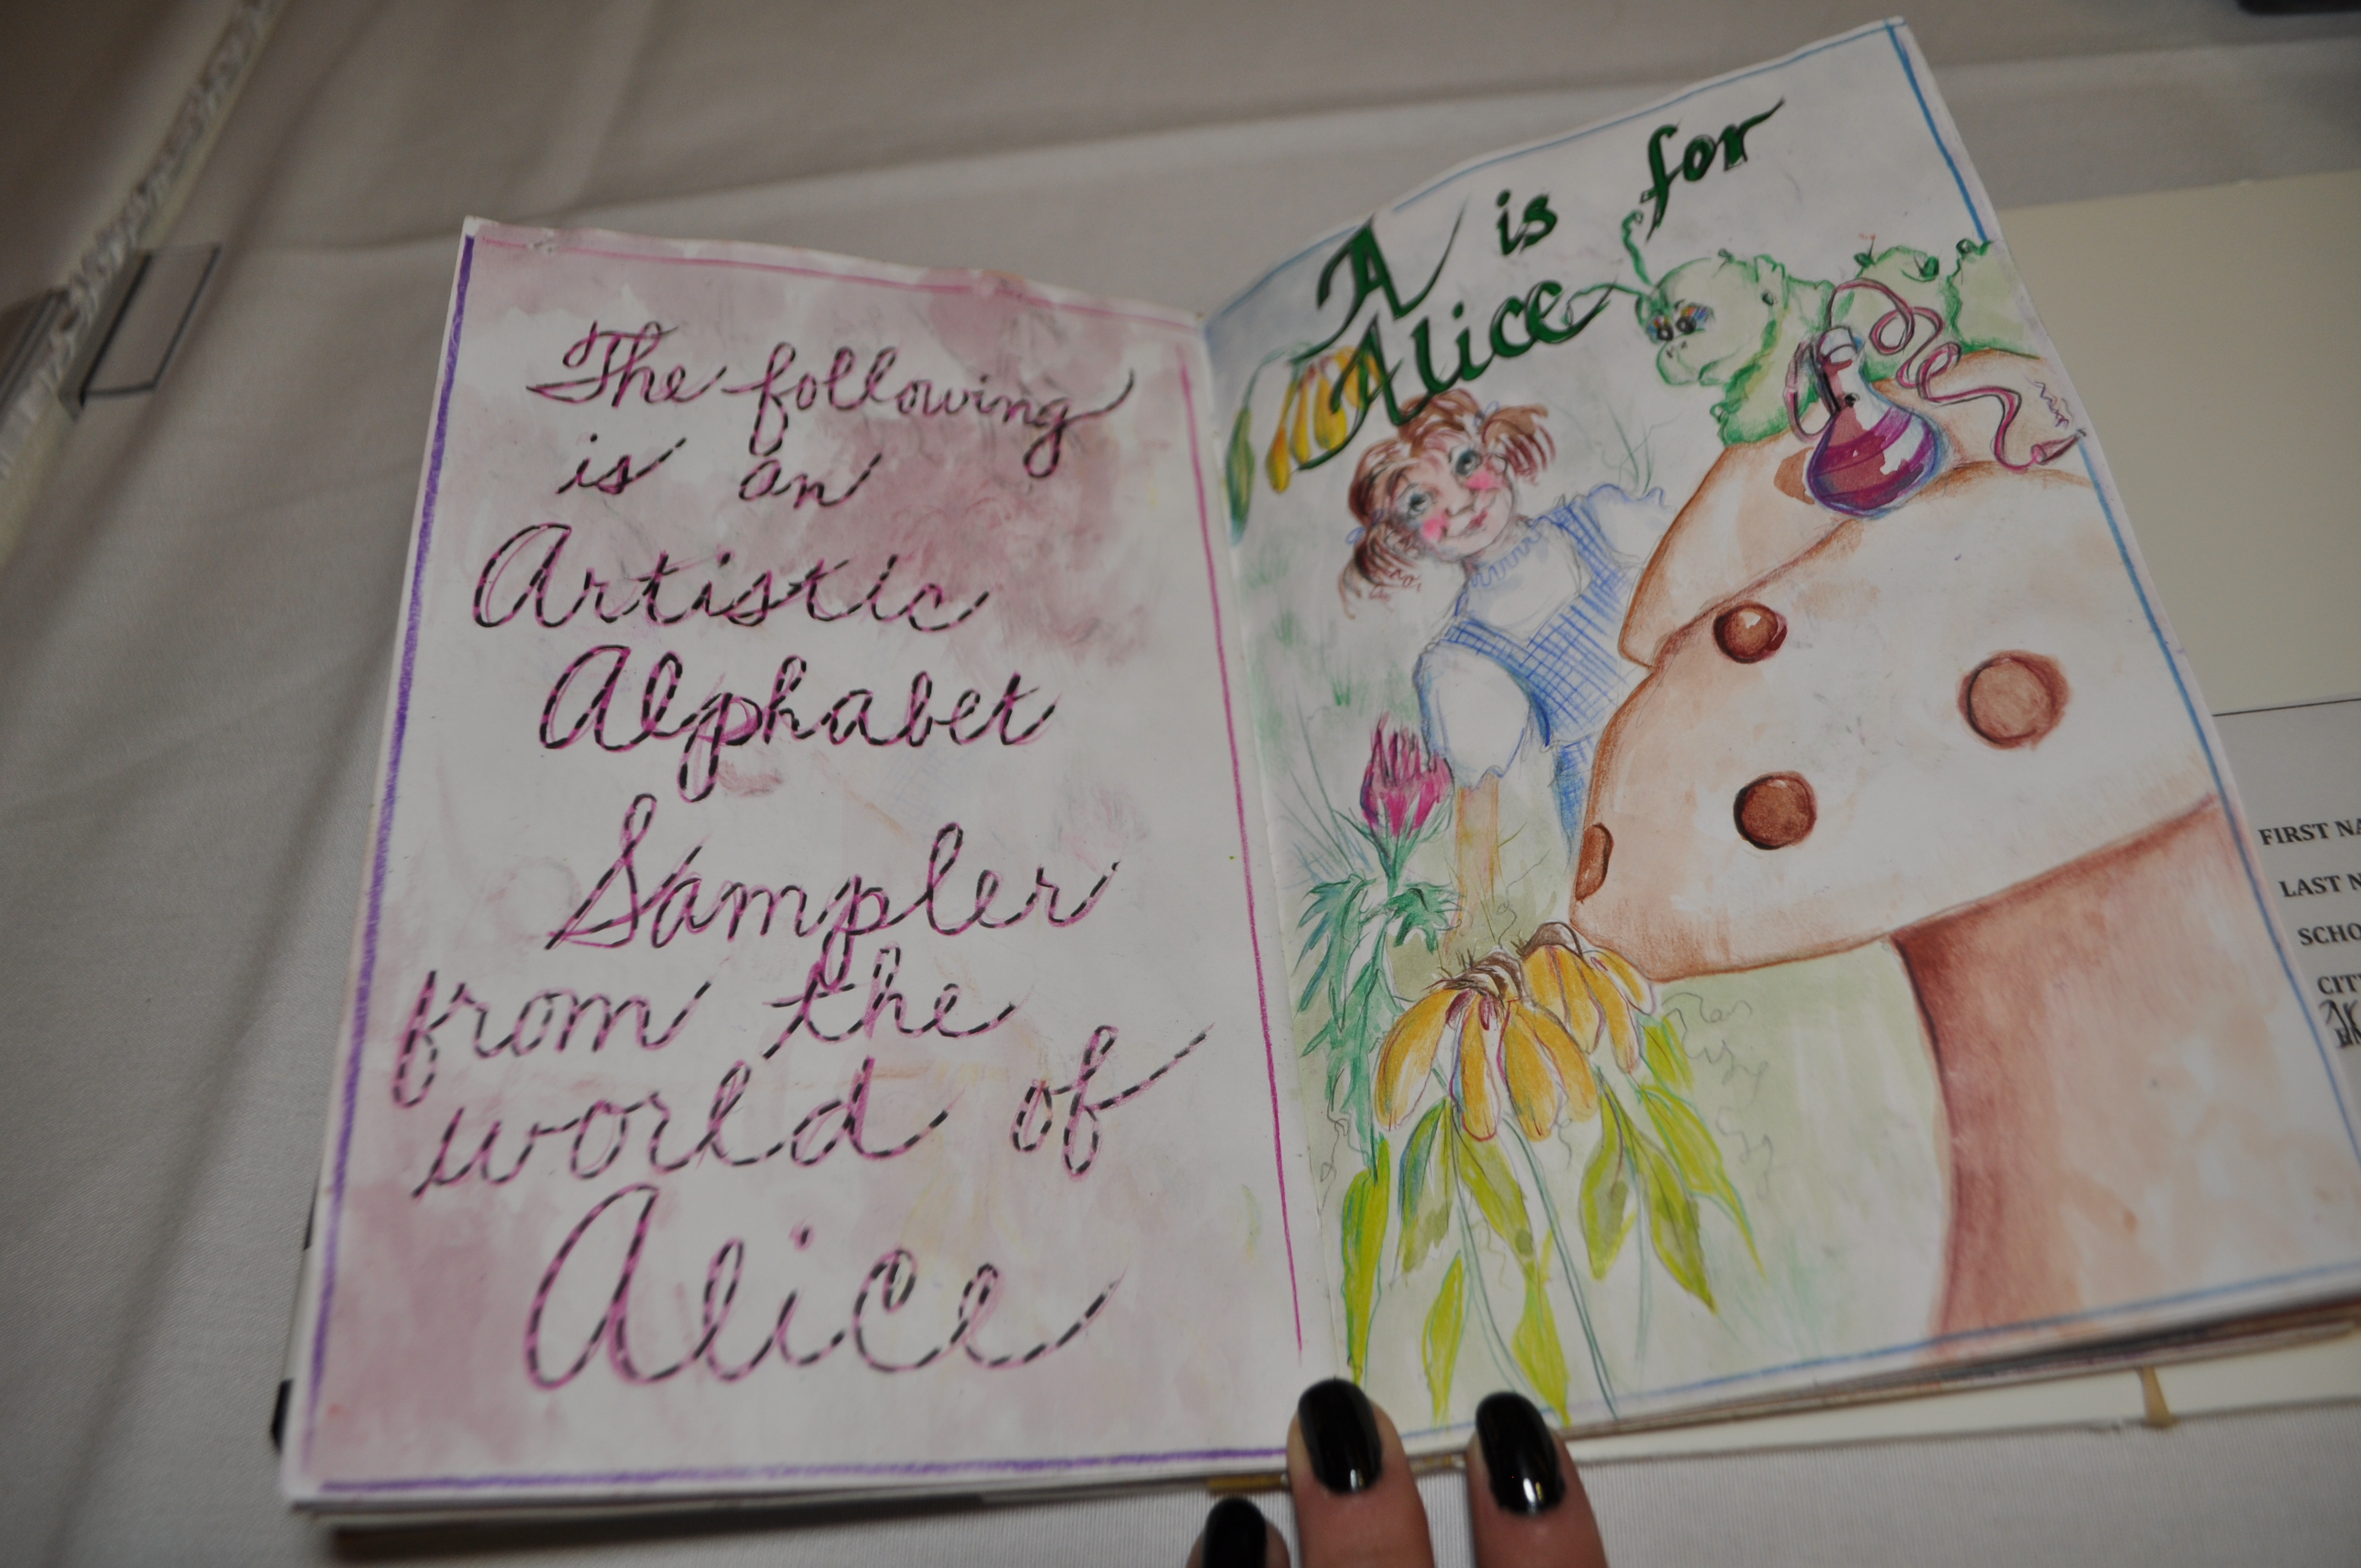 The following
is an
Artistic
Alphabet
Sampler
from the
world of
Alice
A is for
Alice
FIRST
LAST